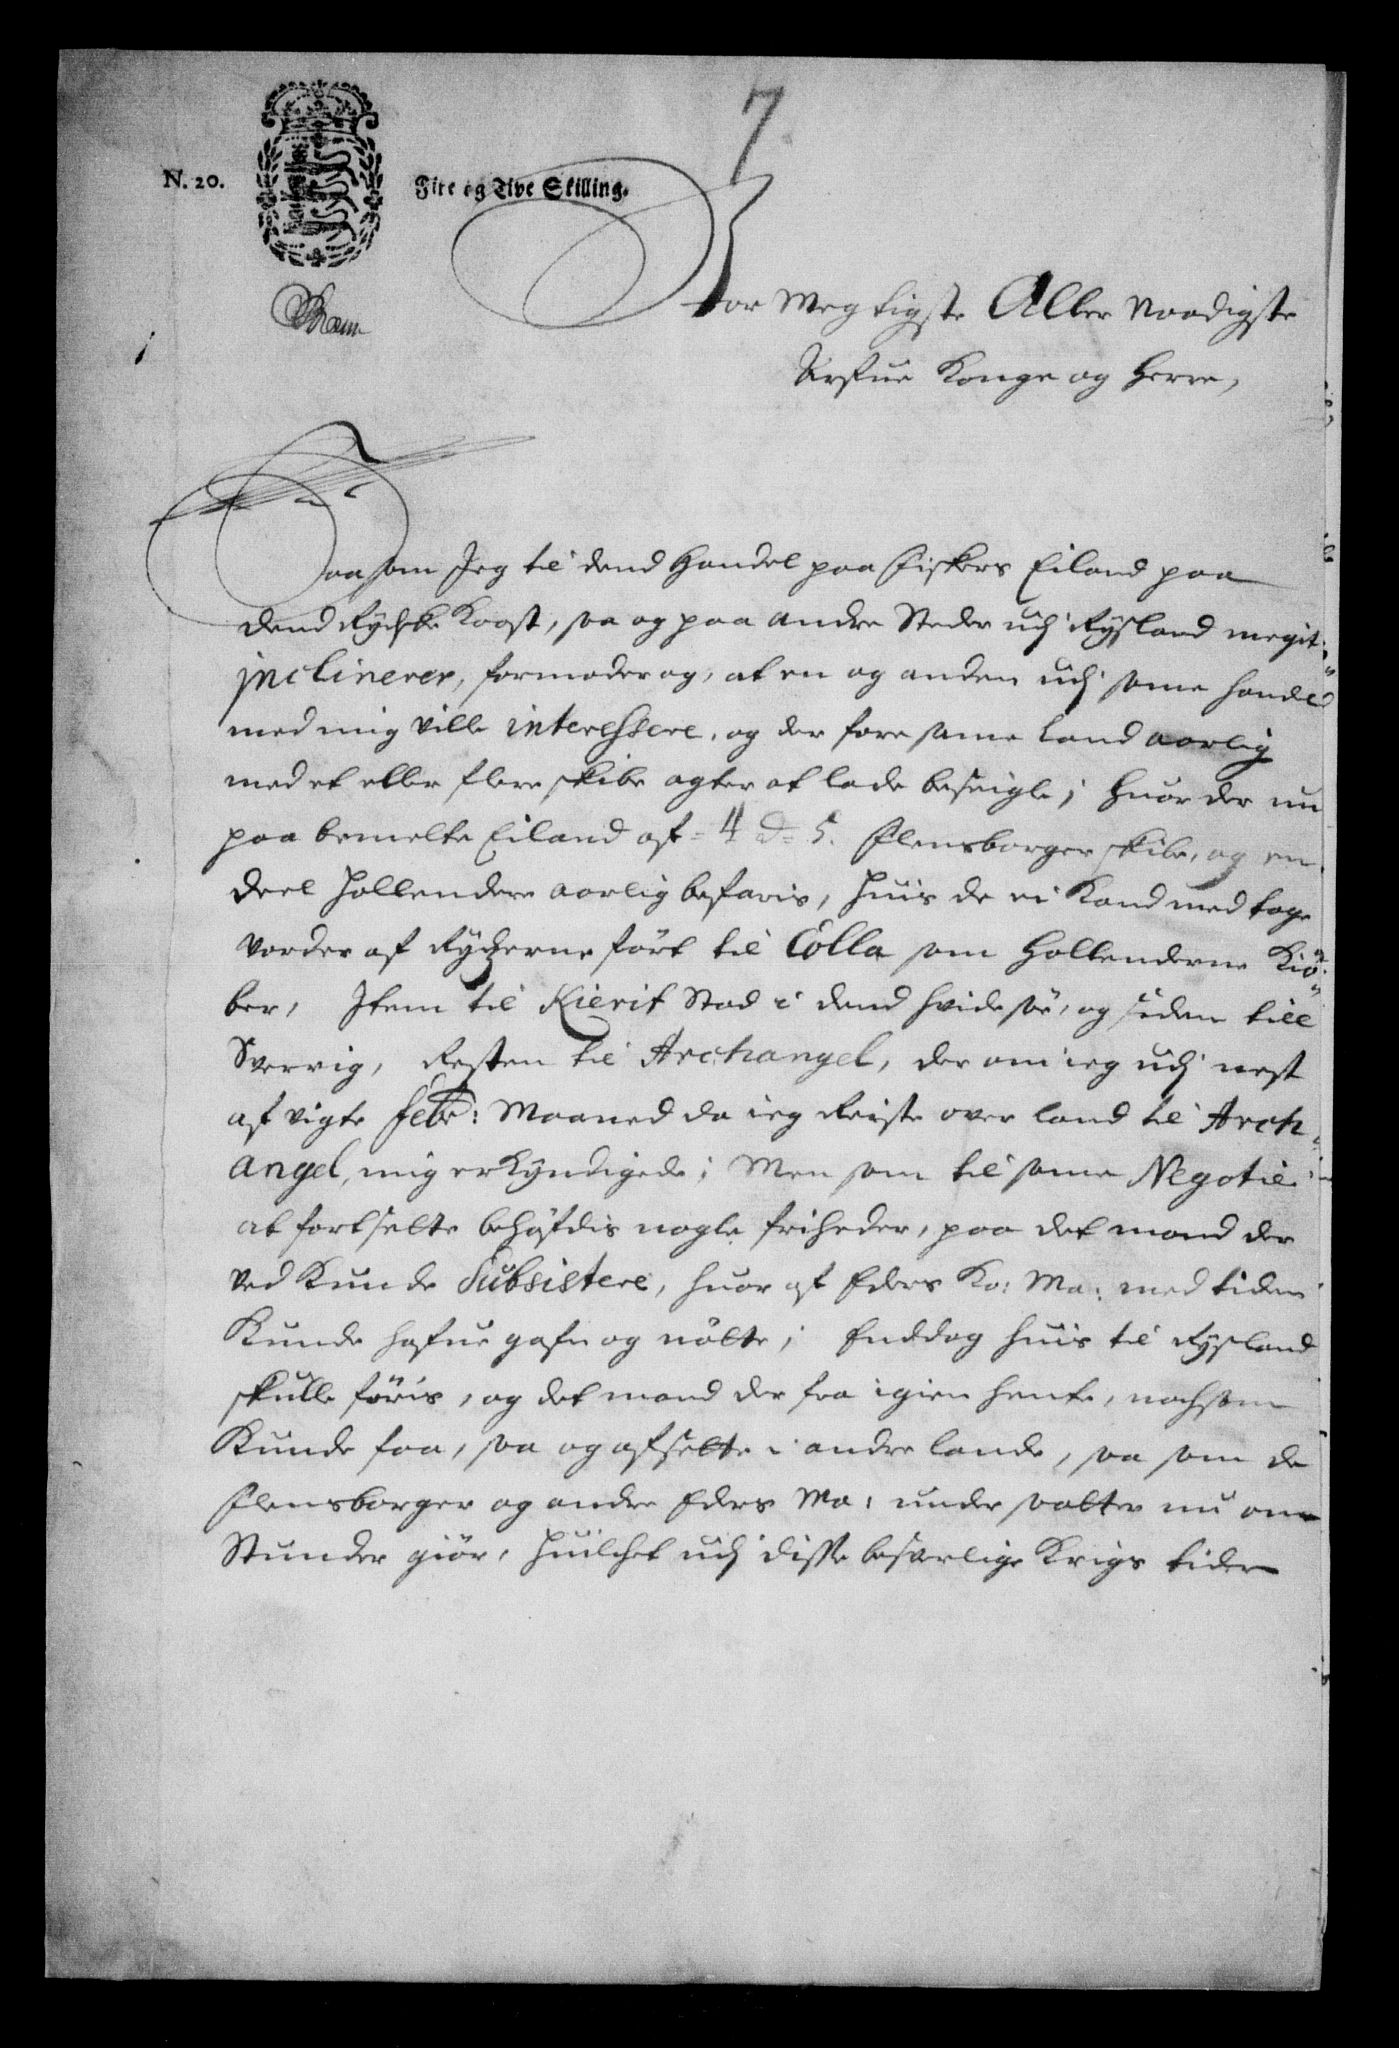 7
N. 20.
Fire og Tive Skilling.
Stormegtigste Aller Naadigste
Arfue Konge og Herre,
Saasom Jeg til dend Handel paa Fiskers Eiland paa
dend Rydske Koost, saa og paa andre Steder udj Rysland megit
inclinerer, formoder og, at en og anden udj same handel
med mig ville interessere, og der fore same land aarlig
med et eller flere skibe agter at lade beseigle; Huor der nu
paa bemelte Eiland af 4 a 5. Flensborger skibe, og en
deel Hollendere aarlig befaris, Huis de ei Kand med tage
vorder af Rydzerne fört til Colla som Hollenderne Kiö-
ber, Item til Kierit Stad i dend hvide söe, og siden till
Sverrig, Resten til Archangel, der om ieg udj nest
afvigte Febr: Maaned da ieg Reiste over land til Arch
angel, mig erkyndigede; Men som til same Negotie
at fortsette behöfdis nogle friheder, paa det mand der
ved Kunde Subsistere, huor af Eders Ko: Ma: med tiden
Kunde hafue gafn og nötte; Enddog huis til Rysland
skulle föris, og det mand der fra igien hente, nochsom
Kunde faa, saa og afsette i andre lande, saa som de
Flensborger og andre Eders Ma: undersaatter nu om
Stunder giör, Huilchet udj disse besverlige Krigs tider